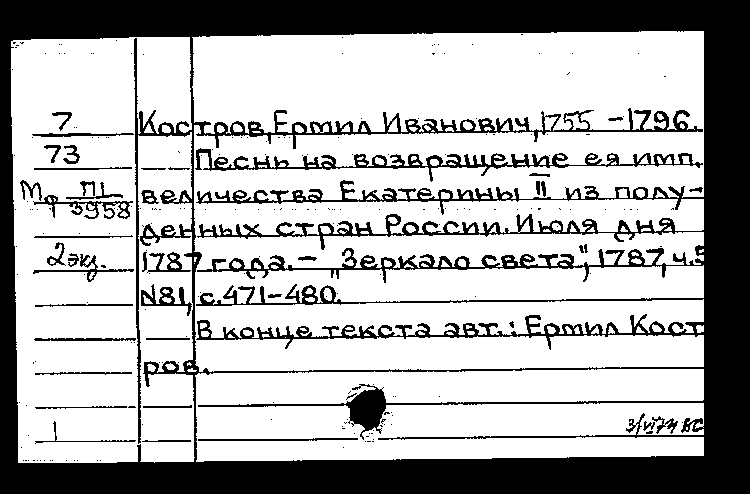 7 Костров, Ермил Иванович, 1755 – 1796.
73 Песнь на возвращение ея имп.
Мф П1/3958 величества Екатерины II из полу-
денных стран России. Июля дня
2 экз. 1787 года. – „Зеркало света", 1787, ч.5
N81, с.471–480.
В конце текста авт.: Ермил Кост
ров.
1 3/VI74 ВС